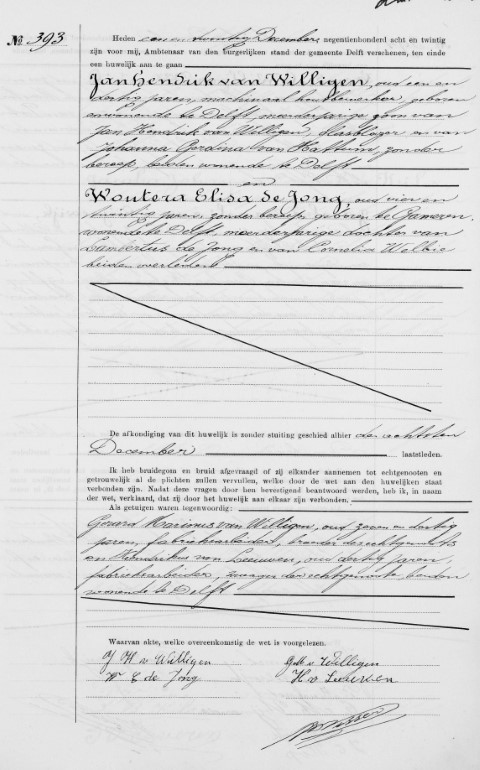 No 393
Heden een en twintig December negentienhonderd acht en twintig
zijn voor mij, Ambtenaar van den burgerlijken stand der gemeente Delft verschenen, ten einde
een huwelijk aan te gaan
Jan Hendrik van Willigen, oud een en
dertig jaren, machinaal houtbewerker, geboren
en wonende te Delft, meerderjarige zoon van
Jan Hendrik van Willigen, en van
Johanna van Hattum, zonder
beroep, beiden wonende te Delft
en
Woutera Elisa de Jong, oud vier en
twintig jaren, zonder beroep, geboren te Gameren,
wonende te Delft, meerderjarige dochter van
Lambertus de Jong en van Cornelia
beiden overleden
De afkondiging van dit huwelijk is zonder stuiting geschied alhier den achtsten
December laatstleden.
Ik heb bruidegom en bruid afgevraagd of zij elkander aannemen tot echtgenooten en
getrouwelijk al de plichten zullen vervullen, welke door de wet aan den huwelijken staat
verbonden zijn. Nadat deze vragen door hen bevestigend beantwoord werden, heb ik, in naam
der wet, verklaard, dat zij door het huwelijk aan elkander zijn verbonden.
Als getuigen waren tegenwoordig:
Gerard Marinus van Willigen, oud zeven en dertig
jaren, fabrieksarbeider, broeder des echtgenoots
en Hendrikus van Leeuwen, oud dertig jaren,
fabrieksarbeider, zwager der echtgenoote, beiden
wonende te Delft
Waarvan akte, welke overeenkomstig de wet is voorgelezen.
J H v Willigen
G M v Willigen
W E de Jong
H v Leeuwen